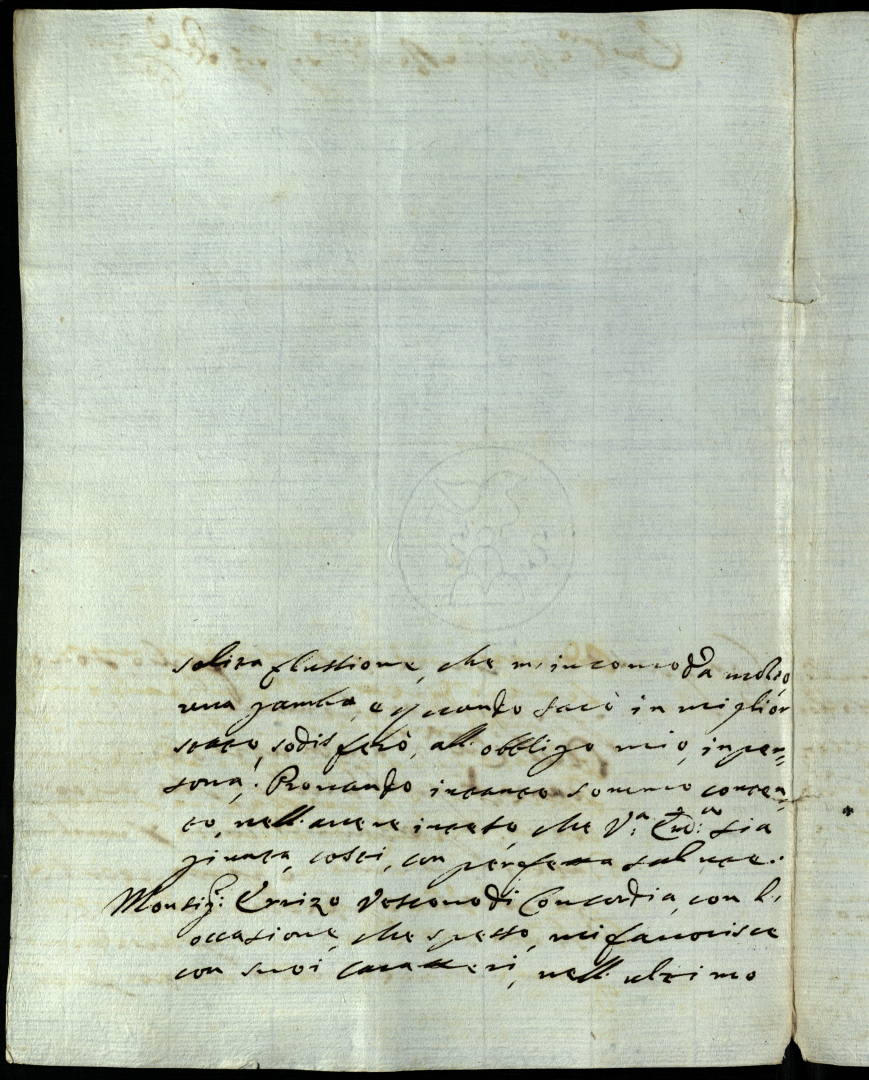 solita flussione, che m'incomoda molto,
una gamba, e quando sarò in miglior
stato, sodisferò, all'obbligo mio, in per=
sona,. Provando intanto sommo conten,
to, nell'avere inteso, che V.ª Em.ª sia
giunta, costi, con perfetta salute.
Monsig.r Erizzo Vescovo di Concordia, con l',
occasione, che spesso, mi favorisce
con suoi caratteri, nell'ultimo